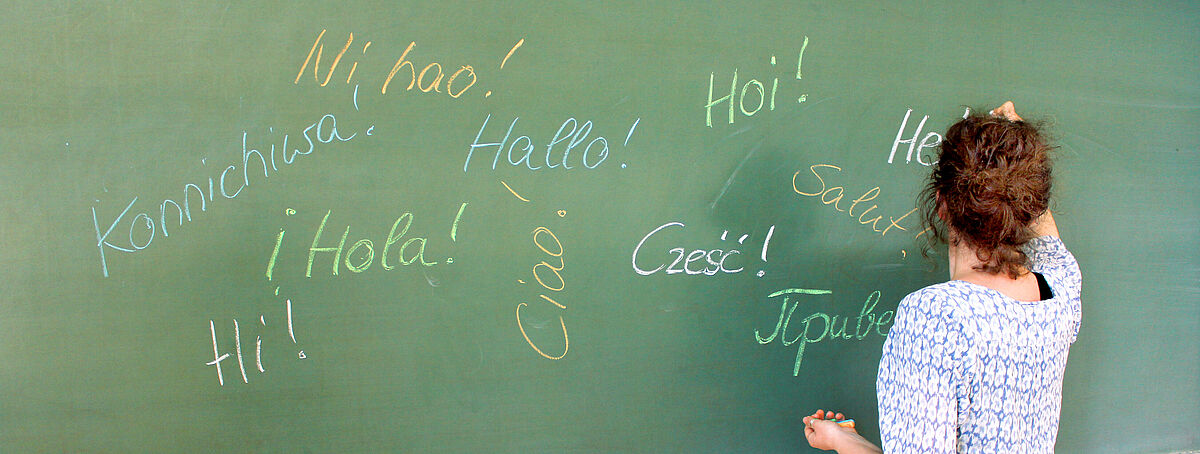 Ni hao!
Hoi!
Konnichiwa!
Hallo!
He
¡Hola!
Ciao!
Salut
Cześć!
Hi!
Приве